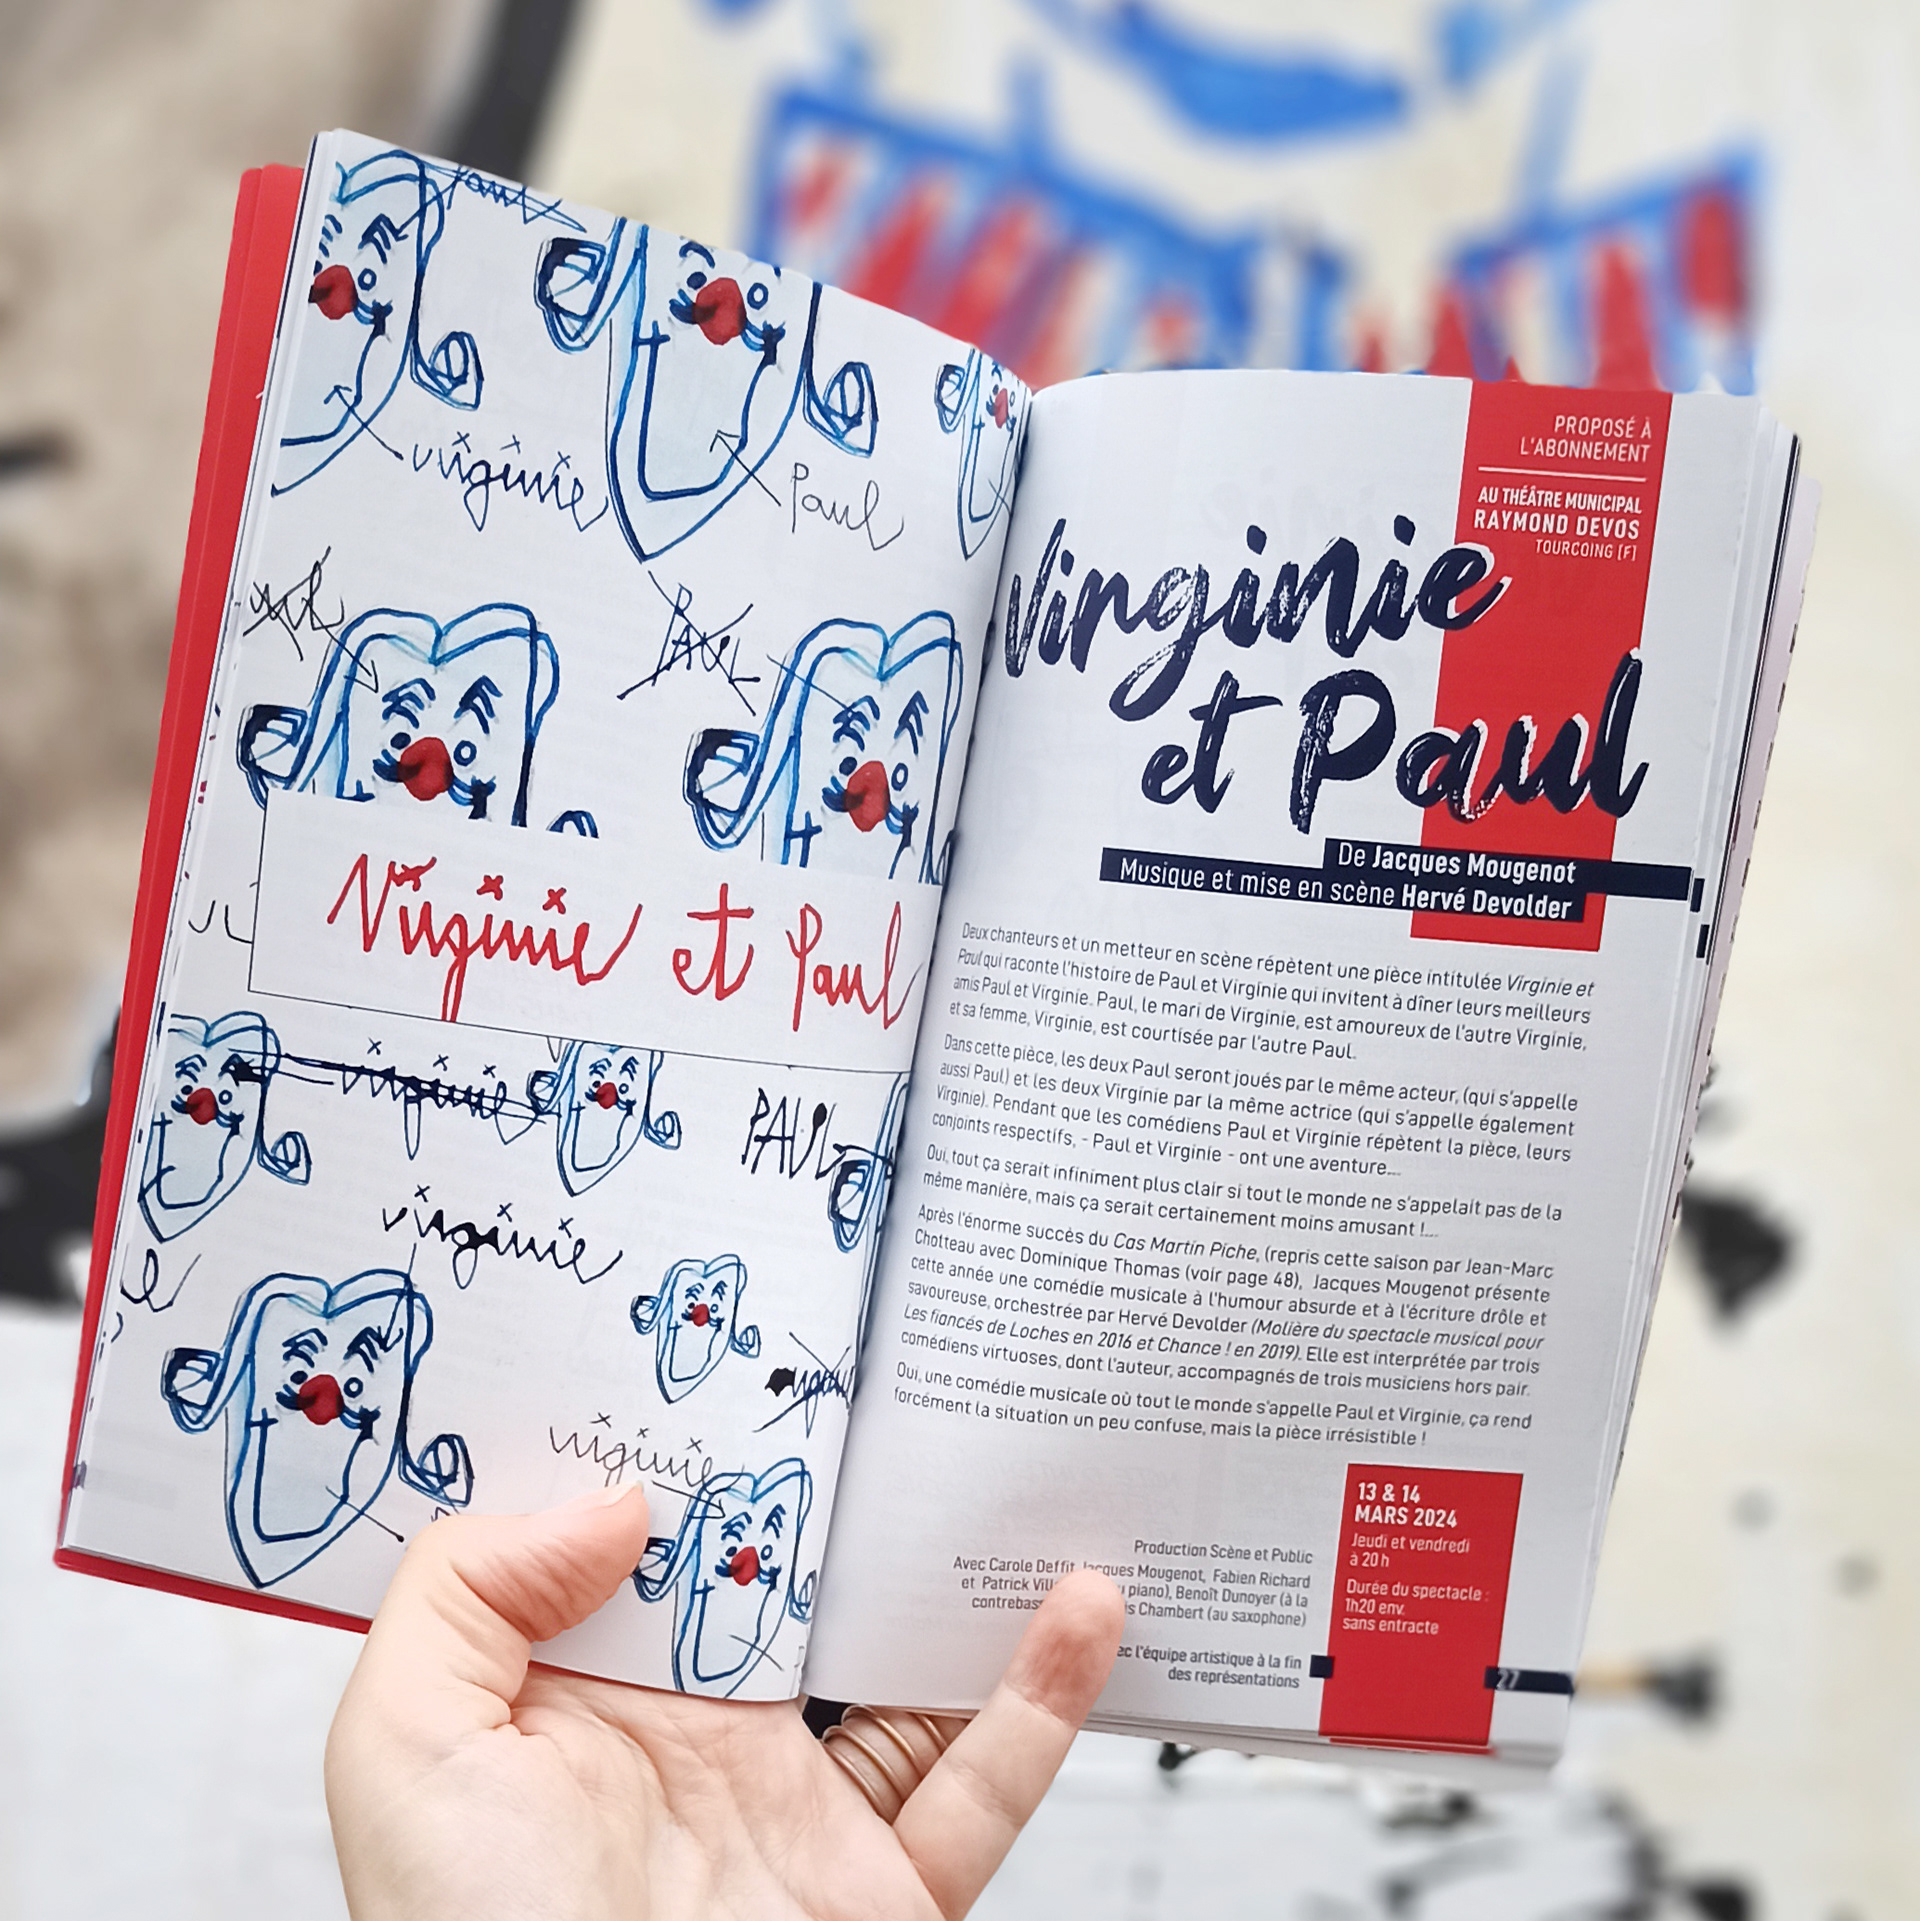 Virginie
Paul
Paul
Virginie et Paul
virginie
PAUL
virginie
virginie
PROPOSÉ À
L'ABONNEMENT
AU THÉÂTRE MUNICIPAL
RAYMOND DEVOS
TOURCOING (F)
Virginie
et Paul
De Jacques Mougenot
Musique et mise en scène Hervé Devolder
Deux chanteurs et un metteur en scène répètent une pièce intitulée Virginie et
Paul qui raconte l'histoire de Paul et Virginie qui invitent à dîner leurs meilleurs
amis Paul et Virginie. Paul, le mari de Virginie, est amoureux de l'autre Virginie,
et sa femme, Virginie, est courtisée par l'autre Paul.
Dans cette pièce, les deux Paul seront joués par le même acteur, (qui s'appelle
aussi Paul) et les deux Virginie par la même actrice (qui s'appelle également
Virginie). Pendant que les comédiens Paul et Virginie répètent la pièce, leurs
conjoints respectifs, - Paul et Virginie - ont une aventure...
Oui, tout ça serait infiniment plus clair si tout le monde ne s'appelait pas de la
même manière, mais ça serait certainement moins amusant !...
Après l'énorme succès du Cas Martin Piche, (repris cette saison par Jean-Marc
Chotteau avec Dominique Thomas (voir page 48), Jacques Mougenot présente
cette année une comédie musicale à l'humour absurde et à l'écriture drôle et
savoureuse, orchestrée par Hervé Devolder (Molière du spectacle musical pour
Les fiancés de Loches en 2016 et Chance ! en 2019). Elle est interprétée par trois
comédiens virtuoses, dont l'auteur, accompagnés de trois musiciens hors pair.
Oui, une comédie musicale où tout le monde s'appelle Paul et Virginie, ça rend
forcément la situation un peu confuse, mais la pièce irrésistible !
Production Scène et Public
Avec Carole Deffit, Jacques Mougenot, Fabien Richard
et Patrick piano), Benoît Dunoyer (à la
Chambert (au saxophone)
l'équipe artistique à la fin
des représentations
13 & 14
MARS 2024
Jeudi et vendredi
à 20 h
Durée du spectacle :
1h20 env.
sans entracte
27